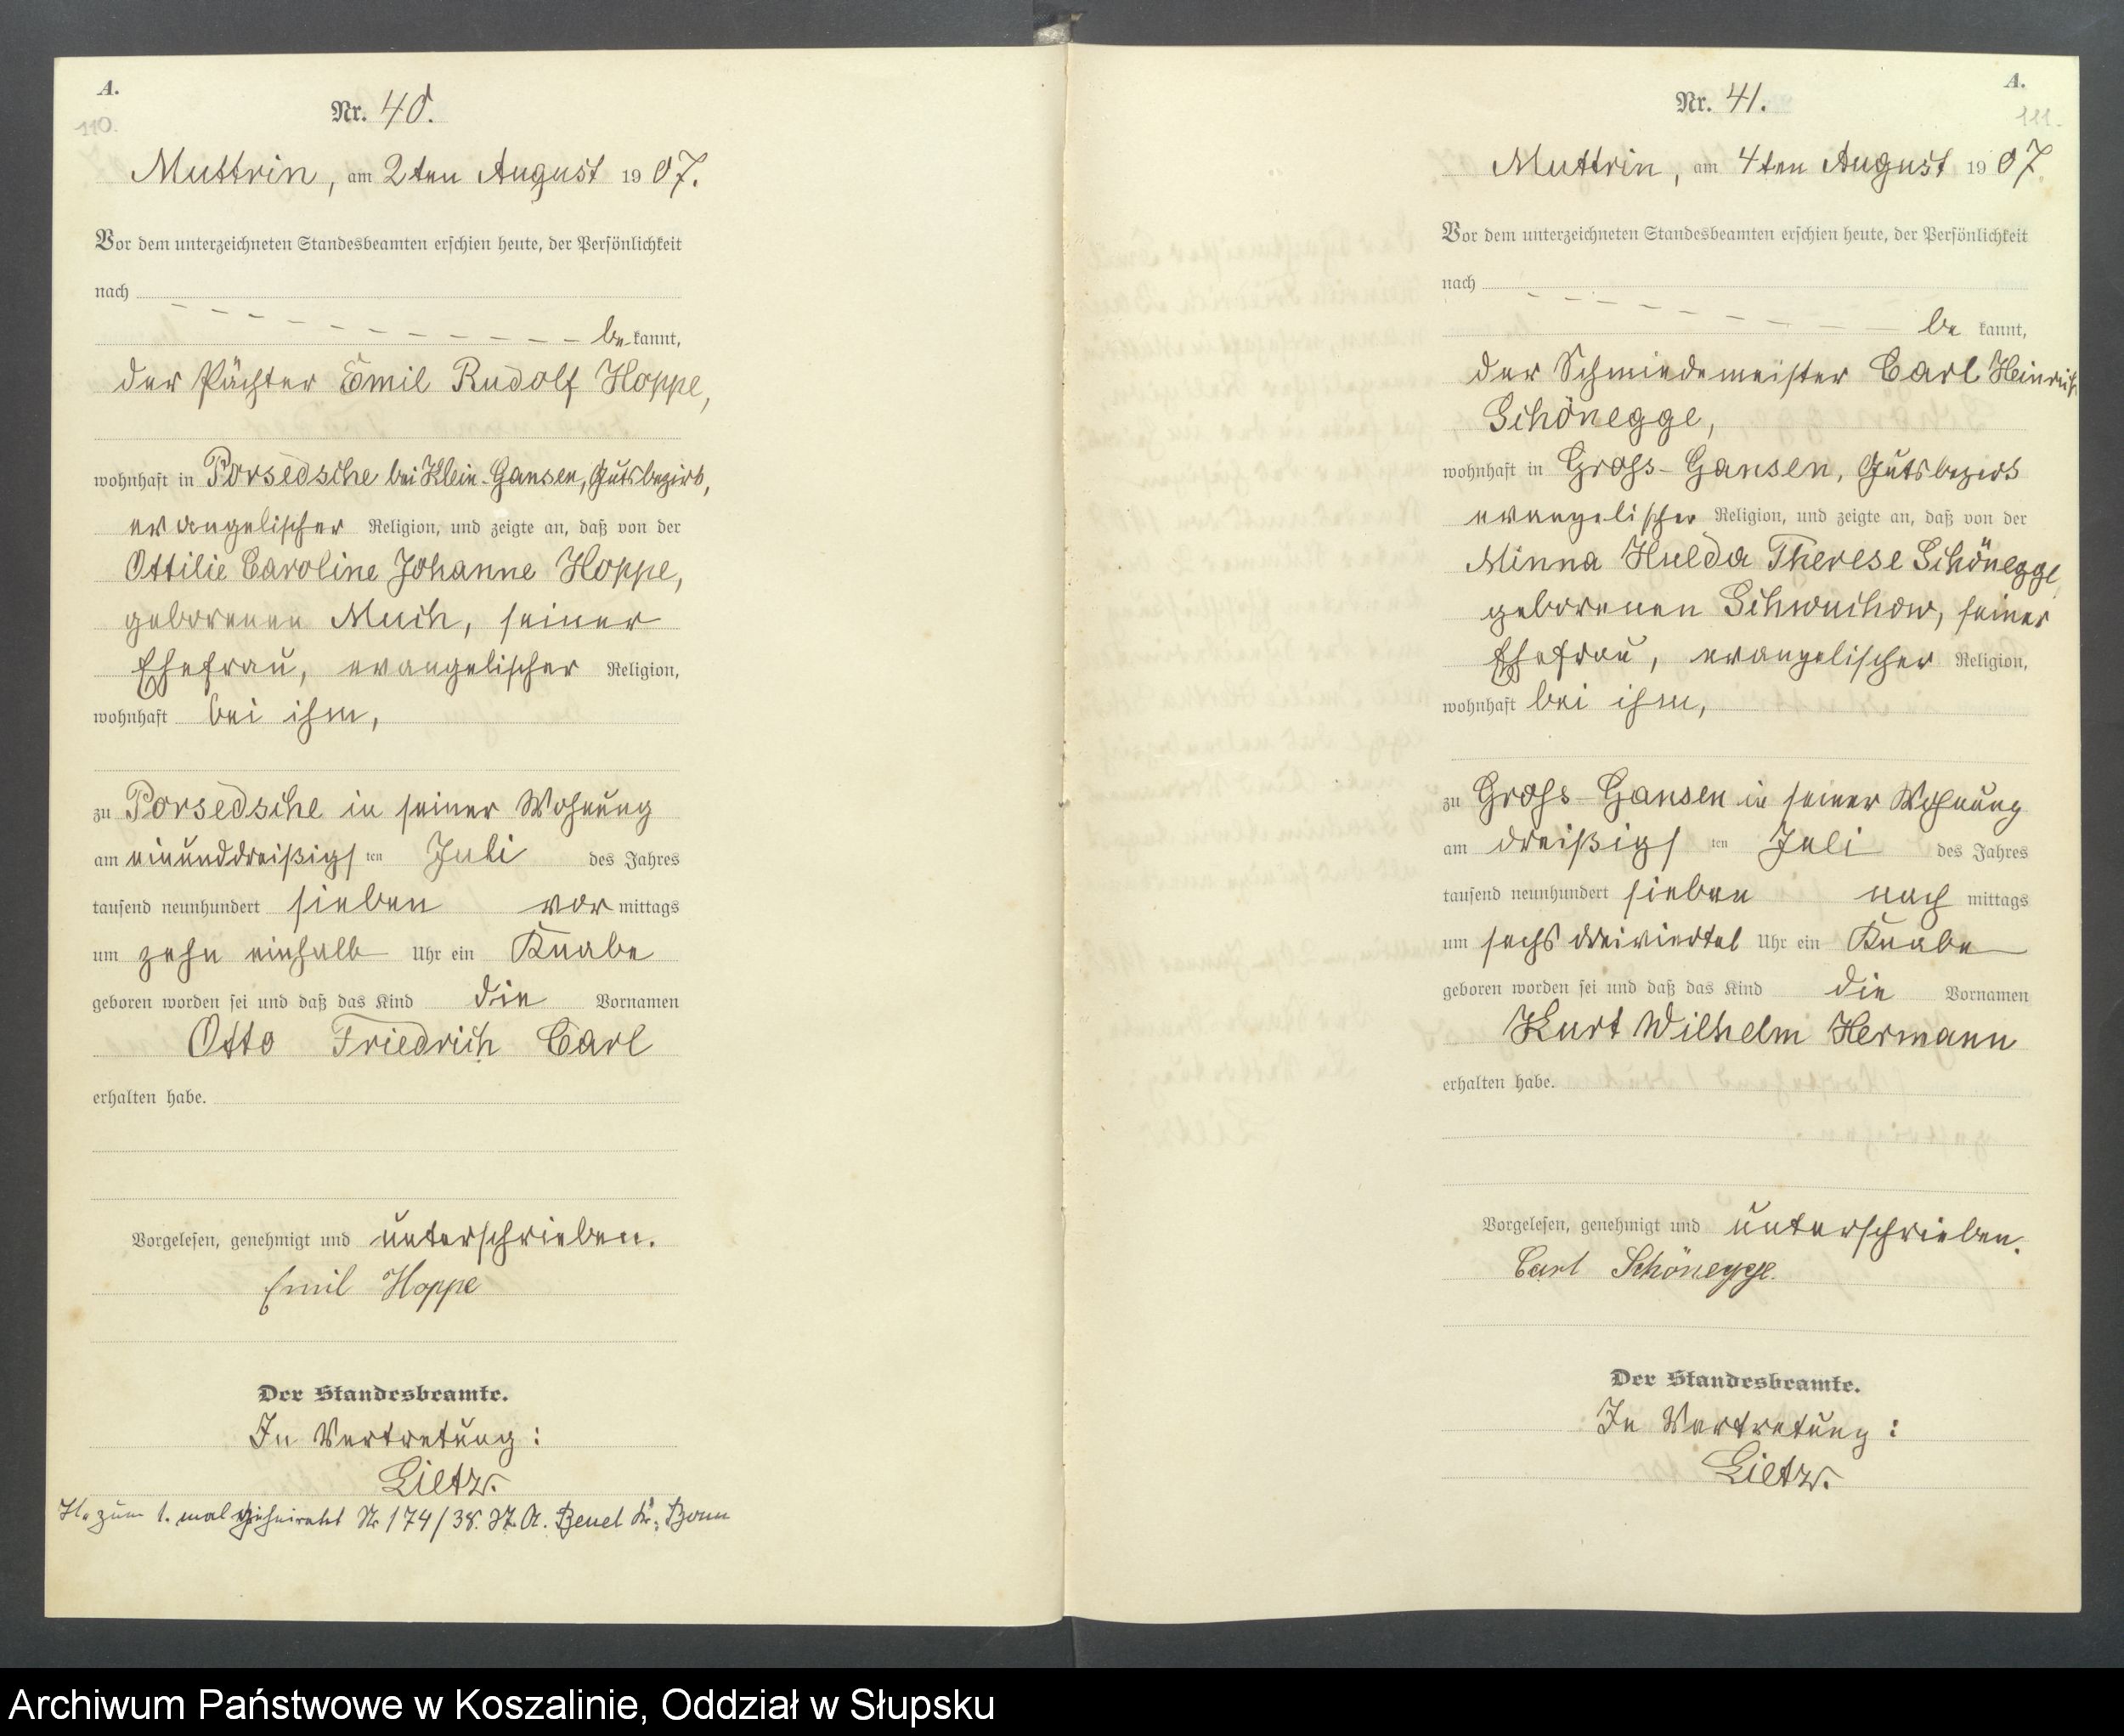 A.
110.
Nr. 40.
Muttrin, am 2ten August 1907.
Vor dem unterzeichneten Standesbeamten erschien heute, der Persönlichkeit
nach
be kannt,
der Pächter Emil Rudolf Hoppe,
wohnhaft in Porsedsche bei Klein-Gansen, Gutsbezirk,
evangelischer Religion, und zeigte an, daß von der
Ottilie Caroline Johanne Hoppe,
geborenen Much, seiner
Ehefrau, evangelischer Religion,
wohnhaft bei ihm,
zu Porsedsche in seiner Wohnung
am einunddreißigsten Juli des Jahres
tausend neunhundert sieben vor mittags
um zehn einhalb Uhr ein Knabe
geboren worden sei und daß das Kind die Vornamen
Otto Friedrich Carl
erhalten habe.
Vorgelesen, genehmigt und unterschrieben.
Emil Hoppe
Der Standesbeamte.
In Vertretung:
Lietz.
zum 1. mal geheiratet Nr 174/38. St. A. Beuel Kr. Bonn
A.
111.
Nr. 41.
Muttrin, am 4ten August 1907.
Vor dem unterzeichneten Standesbeamten erschien heute, der Persönlichkeit
nach
be kannt,
der Schmiedemeister Carl Heinrich
Schönegge,
wohnhaft in Groß-Gansen, Gutsbezirk
evangelischer Religion, und zeigte an, daß von der
Minna Hulda Therese Schönegge
geborenen Schwuchow, seiner
Ehefrau, evangelischer Religion,
wohnhaft bei ihm,
zu Groß-Gansen in seiner Wohnung
am dreißigsten Juli des Jahres
tausend neunhundert sieben nach mittags
um sechs dreiviertel Uhr ein Knabe
geboren worden sei und daß das Kind die Vornamen
Kurt Wilhelm Hermann
erhalten habe.
Vorgelesen, genehmigt und unterschrieben.
Carl Schönegge.
Der Standesbeamte.
In Vertretung:
Lietz.
Archiwum Państwowe w Koszalinie, Oddział w Słupsku